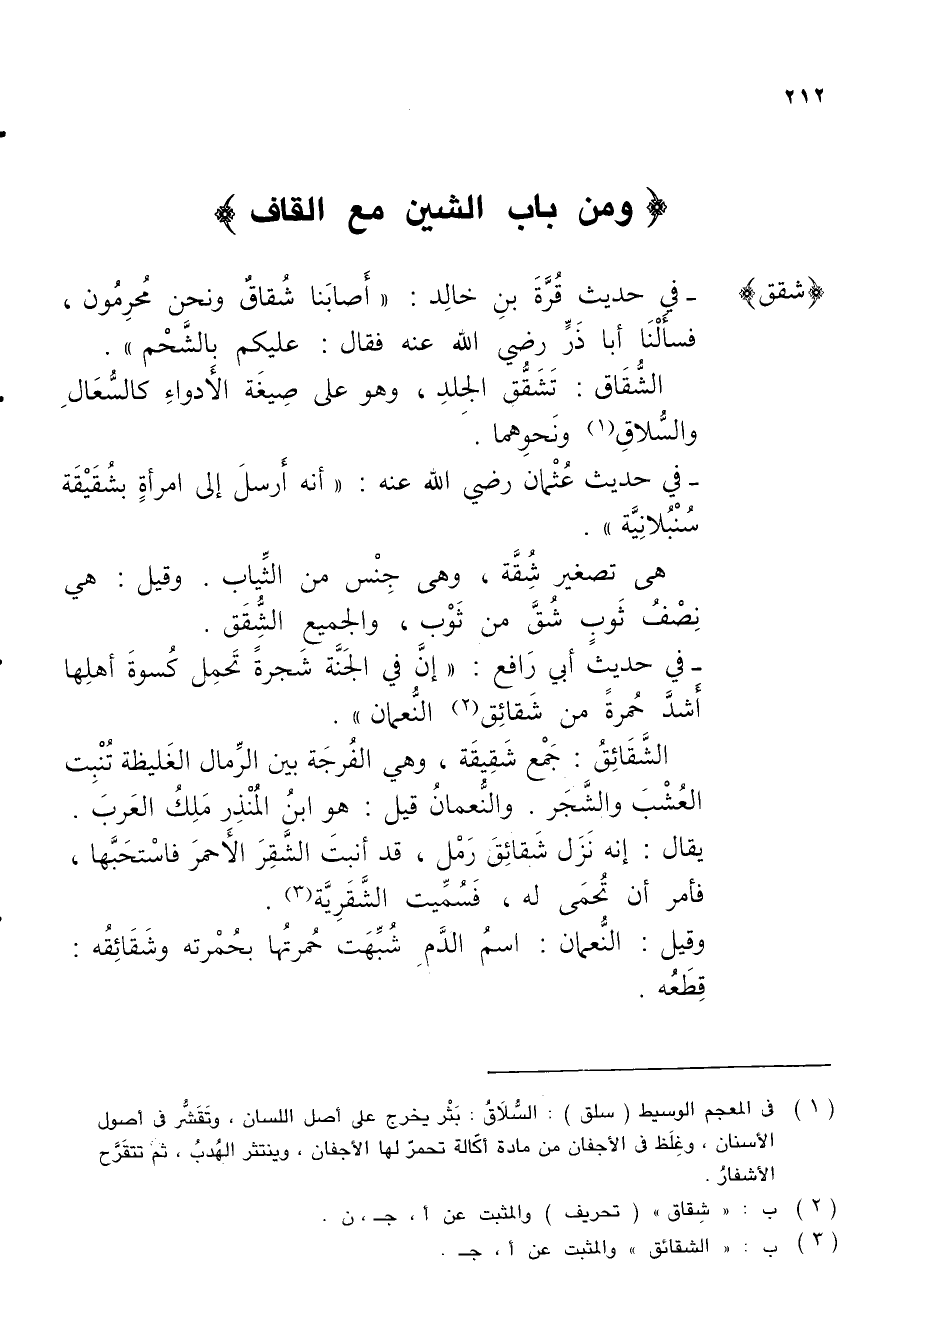 ٢١٢
﴿ ومن باب الشين مع القاف ﴾
﴿شقق﴾ ـ في حديث قُرَّةَ بنِ خالِد : « أَصابَنا شُقاقٌ ونحن مُحرِمُون ،
فسأَلْنَا أبا ذَرٍّ رضي الله عنه فقال : عليكم بالشَّحْم » .
الشُّقَاق : تَشَقُّق الجلدِ ، وهو على صِيغَة الأَدواءِ كالسُّعَالِ
والسُّلاقِ(١) ونَحوِهما .
ـ في حديث عُثْمان رضي الله عنه : « أنه أَرسلَ إلى امرأةٍ بشُقَيْقَة
سُنْبُلانِيَّة » .
هى تصغير شِقَُّة ، وهى جِنْس من الثِّياب . وقيل : هي
نِصْفُ ثَوبٍ شُقَّ من ثَوْب ، والجميع الشُِّقَق .
ـ في حديث أبي رَافع : « إنَّ في الجَنَّة شَجرةً تَحمِل كُسوةَ أهلِها
أَشدَّ حُمرةً من شَقائِق(٢) النُّعمان » .
الشَّقَائِقُ : جَمْع شَقِيقَة ، وهي الفُرجَة بين الرِّمال الغَليظة تُنْبِت
العُشْبَ والشَّجَر . والنُّعمانُ قيل : هو ابنُ المُنْذِر مَلِكُ العَربَ .
يقال : إنه نَزَل شَقائِقَ رَمْل ، قد أنبتَ الشَّقِرَ الأَحمرَ فاسْتحَبَّها ،
فأمر أن تُحمَى له ، فَسُمِّيت الشَّقَرِيَّة(٣) .
وقيل : النُّعمان : اسمُ الدَّمِ شُبِّهَت حُمرتُها بحُمْرته وشَقَائِقُه :
قِطَعُه .
( ١ ) فى المعجم الوسيط ( سلق ) : السُّلَاقُ : بَثْر يخرج على أصل اللسان ، وتَقَشُّر فى أصول
الأسنان ، وغِلَظ فى الأجفان من مادة أكّالة تحمرّ لها الأجفان ، وينتثر الهُدبُ ، ثم تتقَرَّح
الأشفارُ .
( ٢ ) ب : « شِقاق » ( تحريف ) والمثبت عن أ ، جـ ، ن .
( ٣ ) ب : « الشقائق » والمثبت عن أ ، جـ .